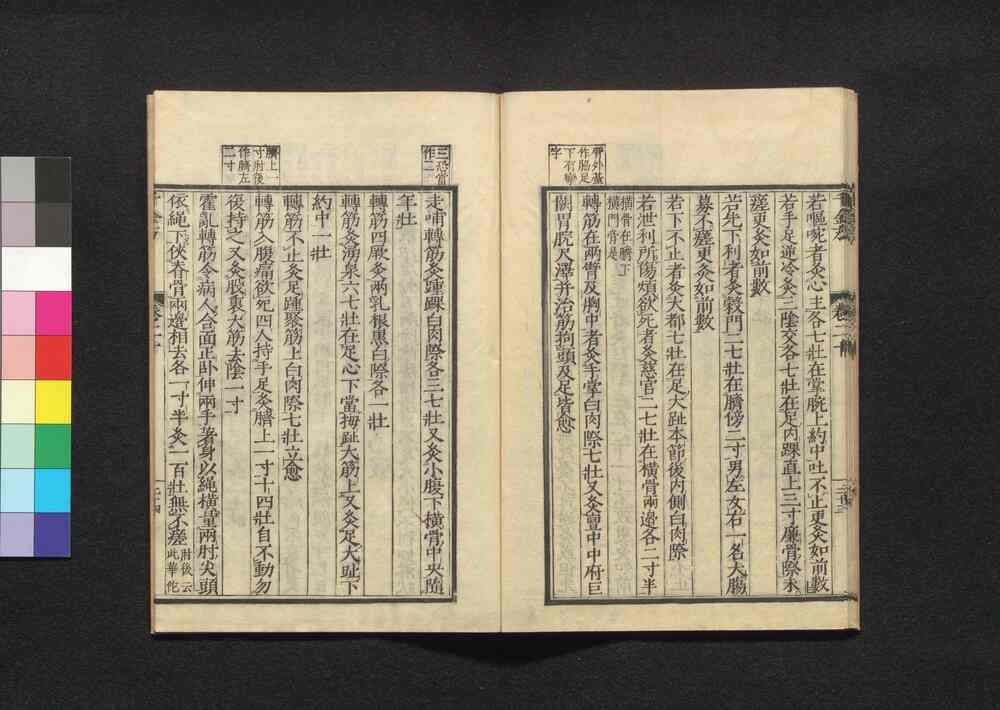 骨外蓋
作脇足
下有臠
字
若嘔呃者灸心主各七壯在掌腕上約中吐不止更灸如前數
若手足逆冷灸三陰交各七壯在足內踝直上三寸廉骨際未
瘥更灸如前數
若先下利者灸穀門二七壯在臍傍二寸男左女右一名大腸
募不瘥更灸如前數
若下不止者灸大都七壯在足大趾本節後內側白肉際
若泄利所傷煩欲死者灸慈宮二七壯在橫骨兩邊各二寸半
橫骨在臍下
橫門骨是
轉筋在兩臂及胸中者灸手掌白肉際七壯又灸亶中中府巨
闕胃脘尺澤并治筋拘頭及足皆愈
三恐當
作二
走哺轉筋灸踵踝白肉際各三七壯又灸小腹下橫骨中央隨
年壯
轉筋四厥灸兩乳根黑白際各一壯
轉筋灸湧泉六七壯在足心下當拇趾大筋上又灸足大趾下
約中一壯
轉筋不止灸足踵聚筋上白肉際七壯立愈
臍上一
寸肘後
作臍左
二寸
轉筋入腹痛欲死四人持手足灸臍上一寸十四壯自不動勿
復持之又灸股裏大筋去陰一寸
霍亂轉筋令病人合面正臥伸兩手著身以繩橫量兩肘尖頭
依繩下俠脊骨兩邊相去各一寸半灸一百壯無不瘥
肘後云
此華佗